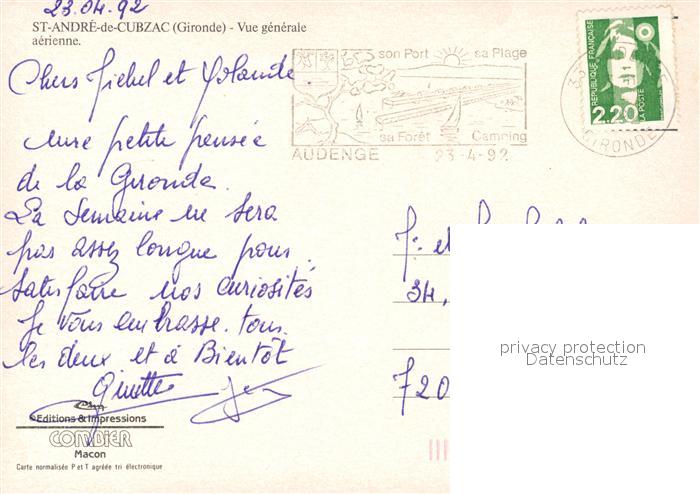 23.04.92
ST-ANDRÉ-de-CUBZAC (Gironde) - Vue générale
aérienne.
Chers Michel et Yolande
Une petite pensée
de la Gironde.
La Semaine ne sera
pas assez longue pour
satisfaire nos curiosités
Je vous embrasse tous
les deux et à Bientôt
Ginette
son Port sa Plage
sa Forêt Camping
AUDENGE 23-4-92
REPUBLIQUE FRANÇAISE
2,20
LA POSTE
GIRONDE
et
34,
720
privacy protection
Datenschutz
Editions & Impressions
COMBIER
Macon
Carte normalisée P et T agréée tri électronique